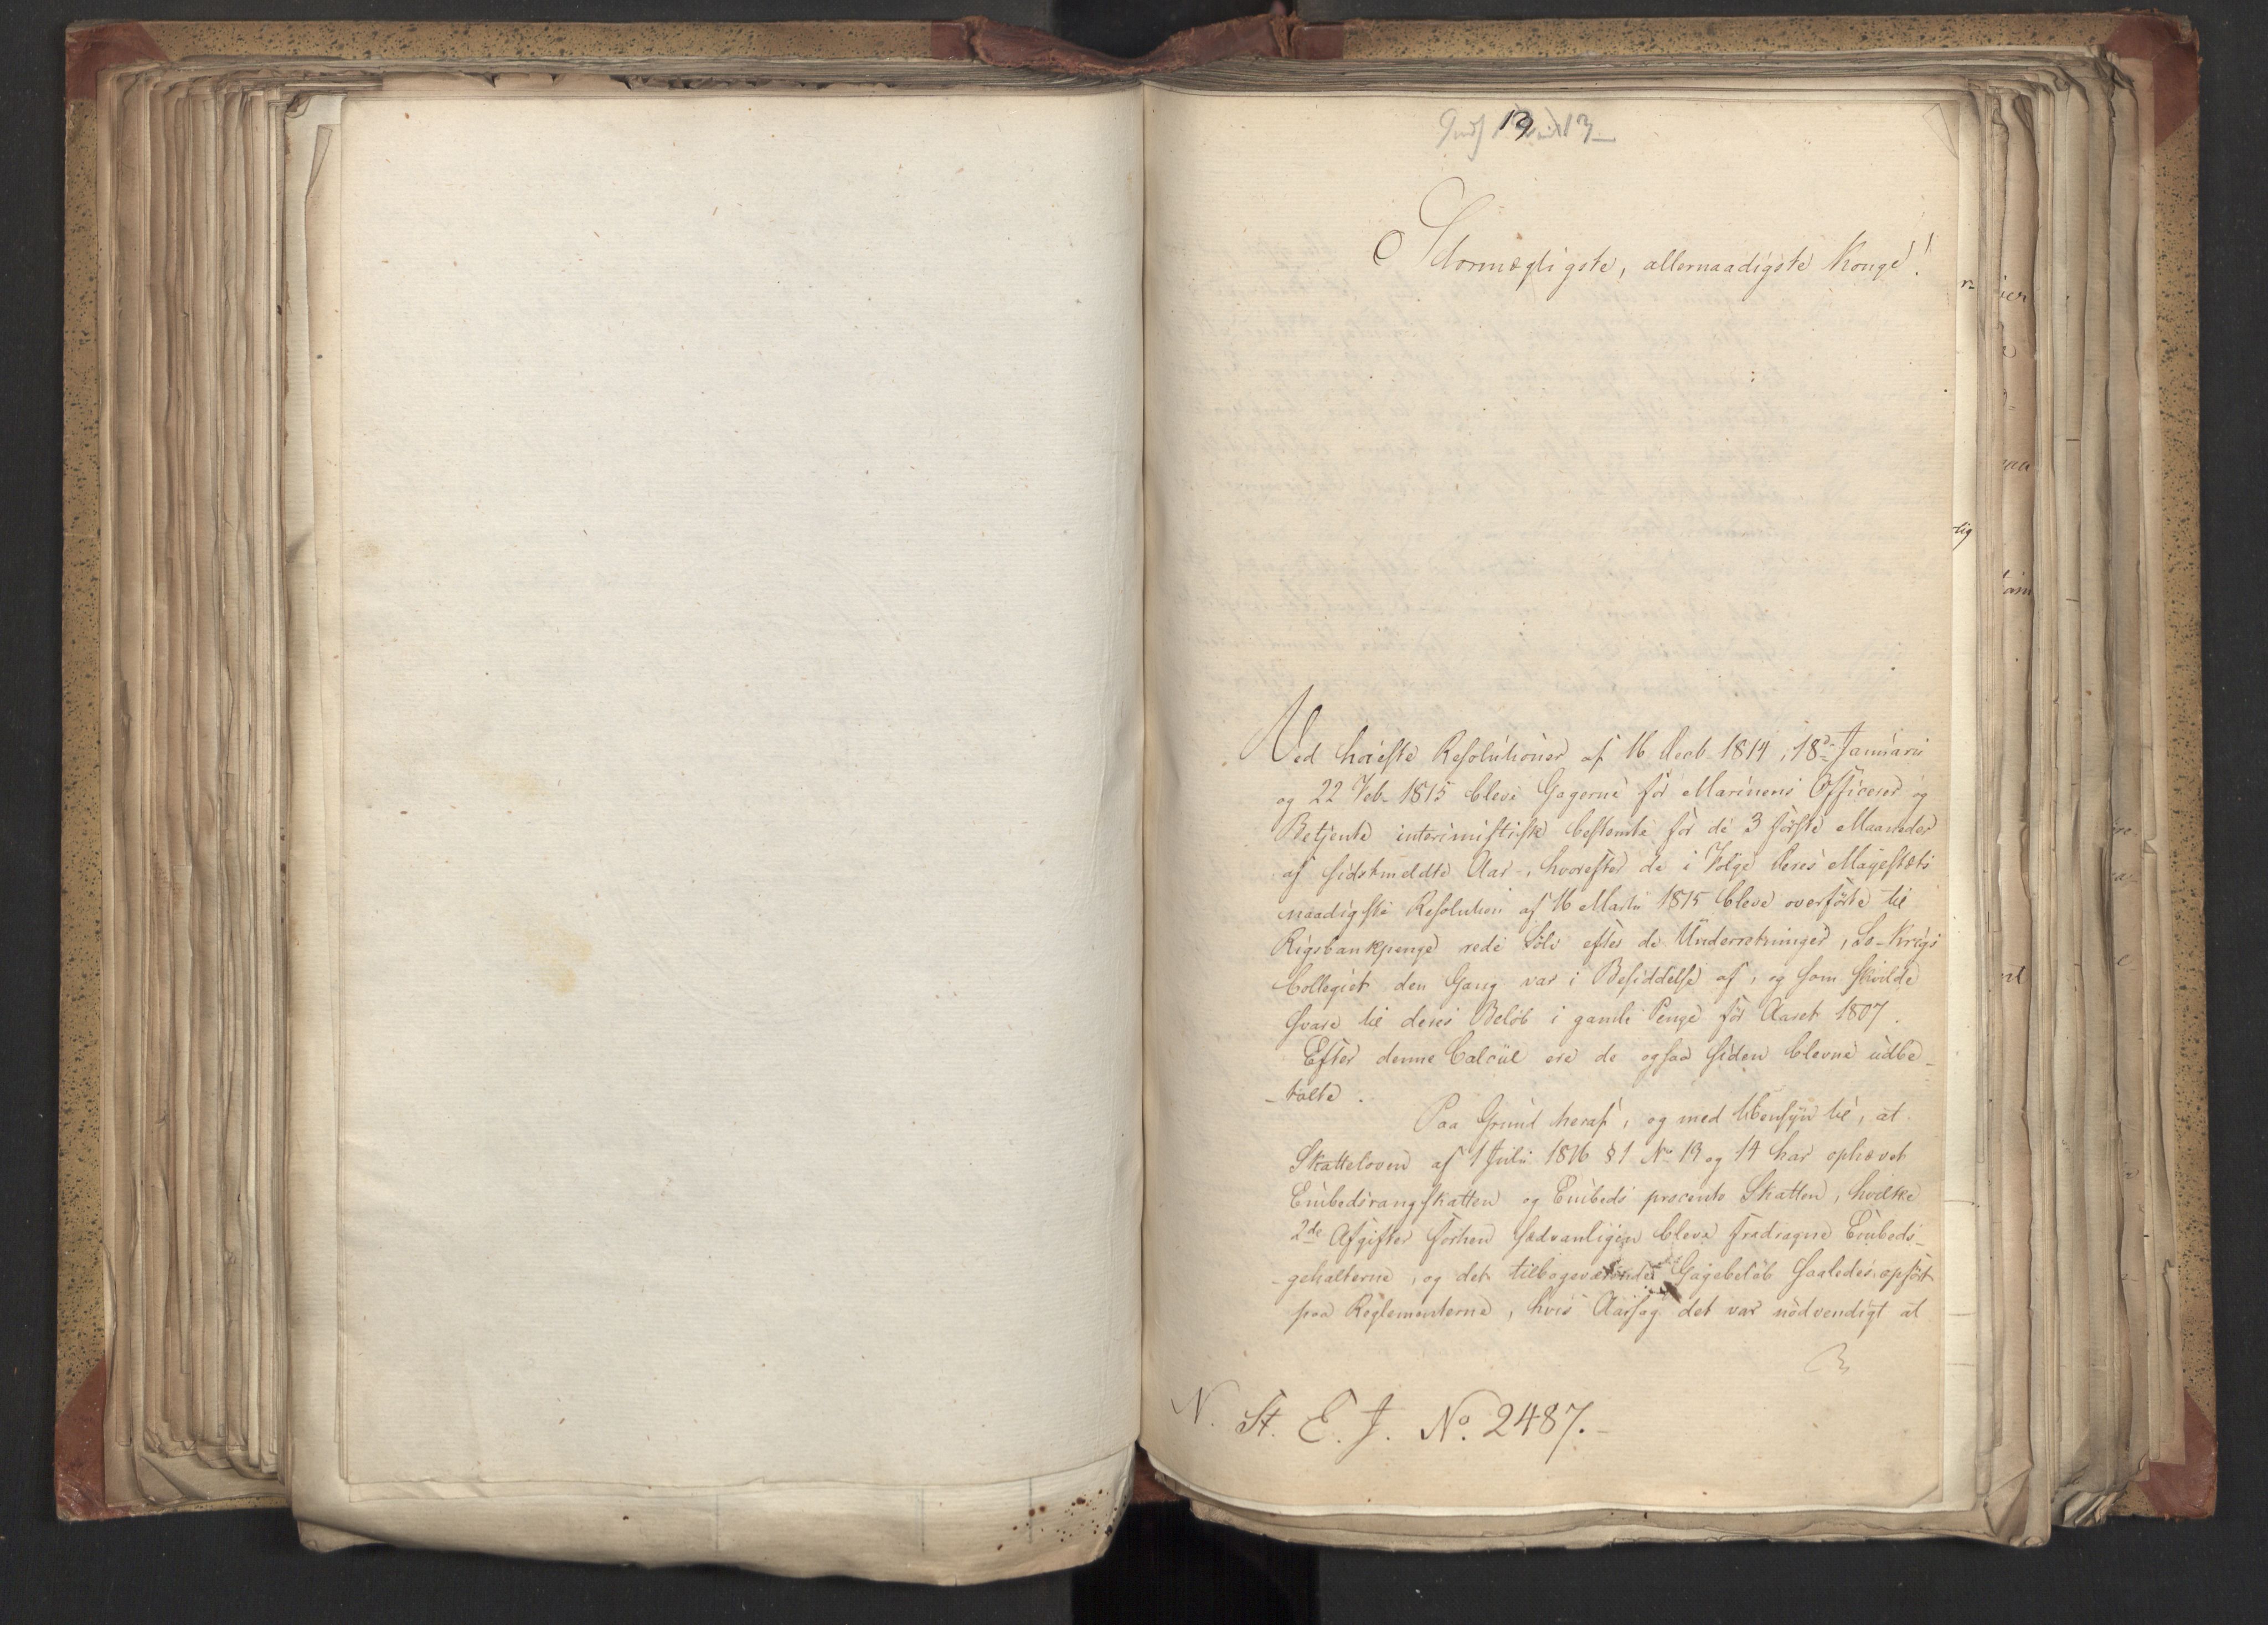 13
Stormægtigste, allernaadigste Konge!
Ved høieste Resolutioner af 16 Decb. 1814, 18de Januarii
og 22 Feb. 1815 bleve Gagerne for Marinens Officerer og
Betjente interimistisk bestemte for de 3 første Maaneder
af sidstmeldte Aar, hvorefter de i Følge Deres Majestæts
naadigste Resolution af 16 Martii 1815 bleve overførte til
Rigsbankpenge rede Sölv efter de Underretninger, Sø-Krigs
Collegiet den Gang var i Besiddelse af, og som skulde
svare til deres Beløb i gamle Penge for Aaret 1807.
Efter denne Calcül ere de ogsaa siden blevne udbe-
-talte.
Paa Grund heraf, og med Hensyn til, at
Skatteloven af 1 Julii 1816 § 1 No 13 og 14 har ophævet
Embedsrangskatten og Embeds procento Skatten, hvilke
2de Afgifter forhen sædvanligen bleve fradragne Embeds-
-gehalterne, og det tilbageværende Gagebeløb saaledes opført
paa Reglementerne, hvis Aarsag det var nødvendigt at
N. St. E. J. No. 2487.-